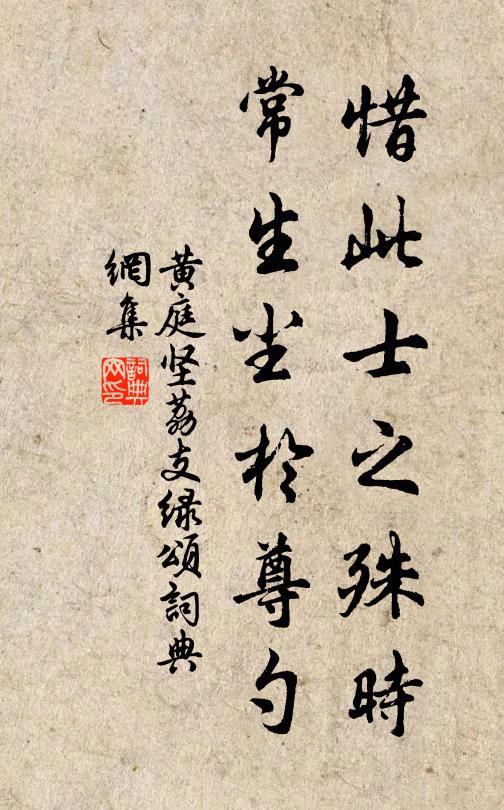 惜此士之殊時
常生尘於尊勺
黄庭坚荔支緑頌詞典
網集
詞典
网印